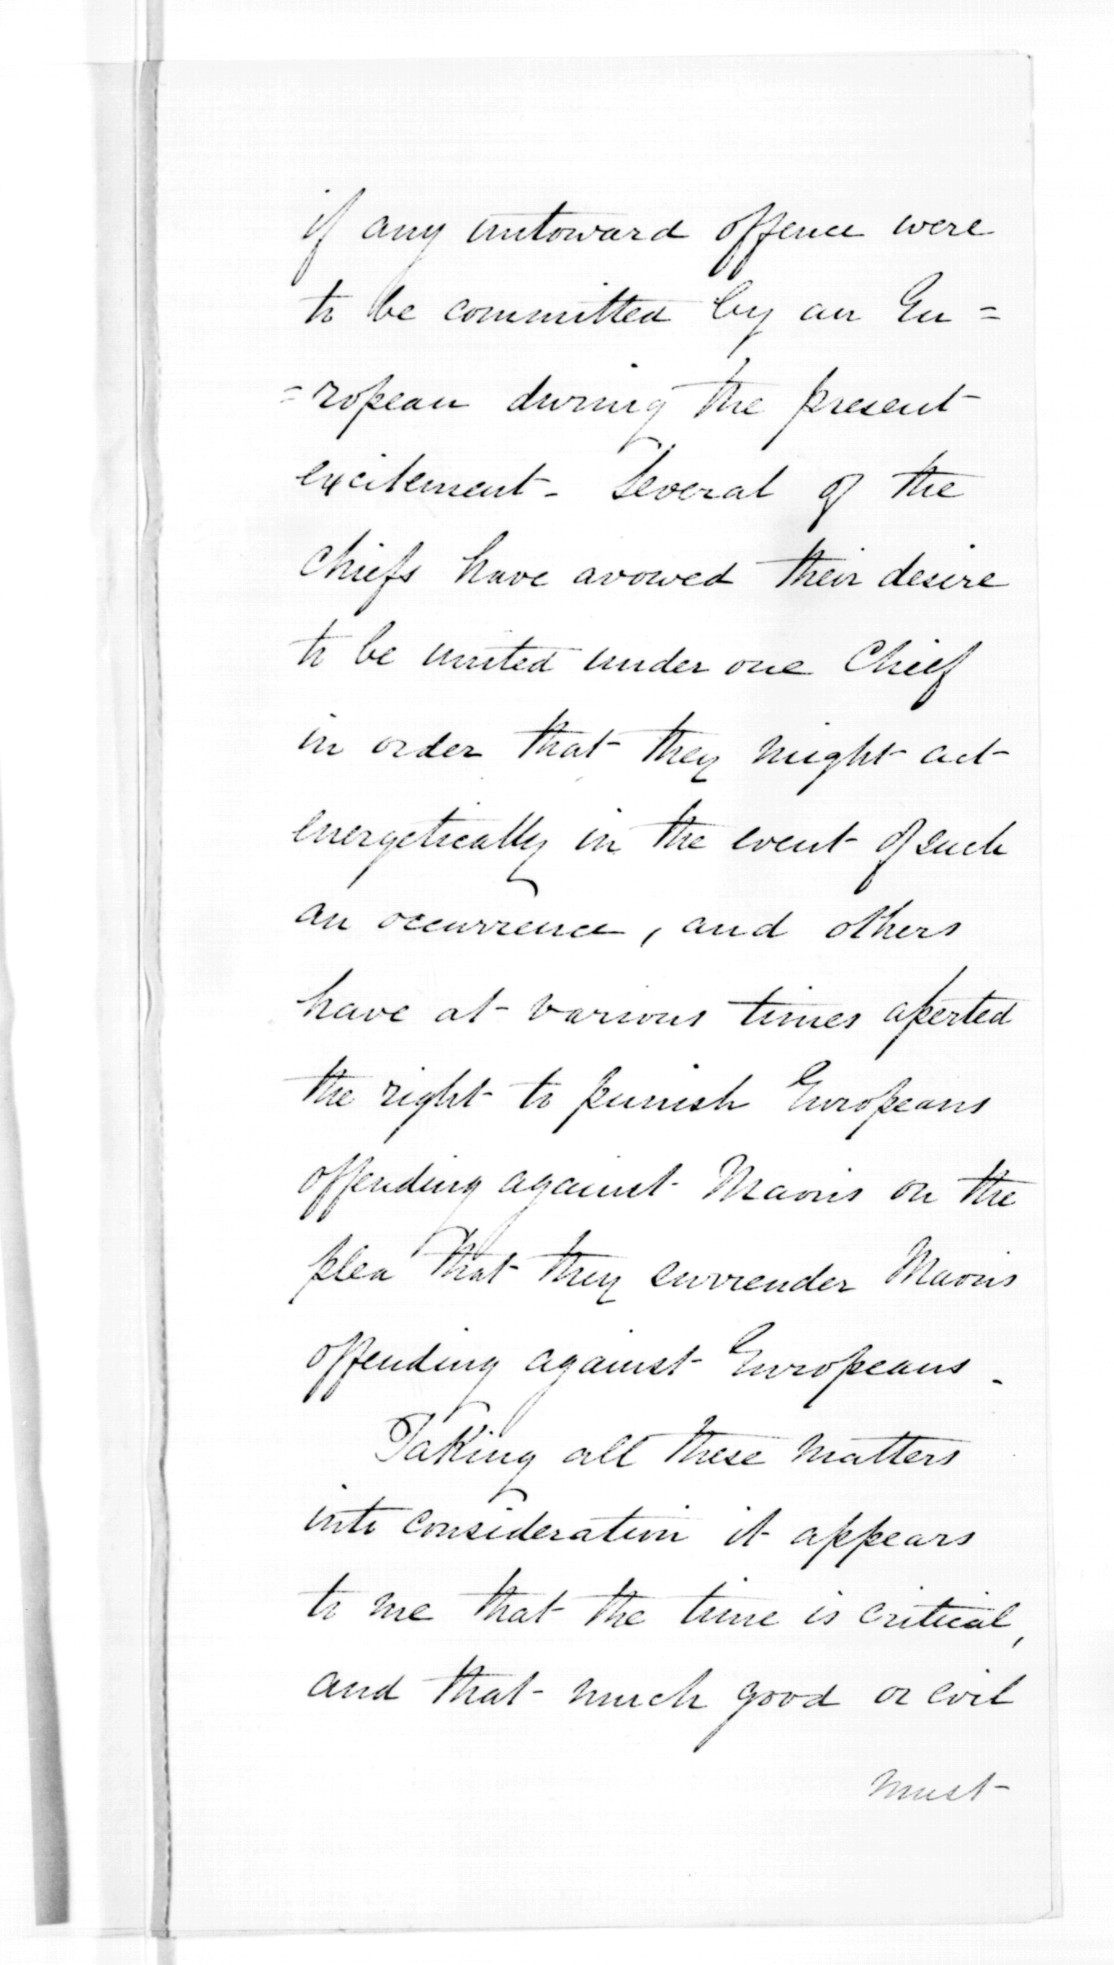 if any untoward offence were
to be committed by an Eu=
=ropean during the present
excitement. Several of the
Chiefs have avowed their desire
to be united under one Chief
in order that they might act
energetically in the event of such
an occurrence, and others
have at various times asserted
the right to punish Europeans
offending against Maoris on the
plea that they surrender Maoris
offending against Europeans.
Taking all these matters
into consideration it appears
to me that the time is critical,
and that much good or evil
must